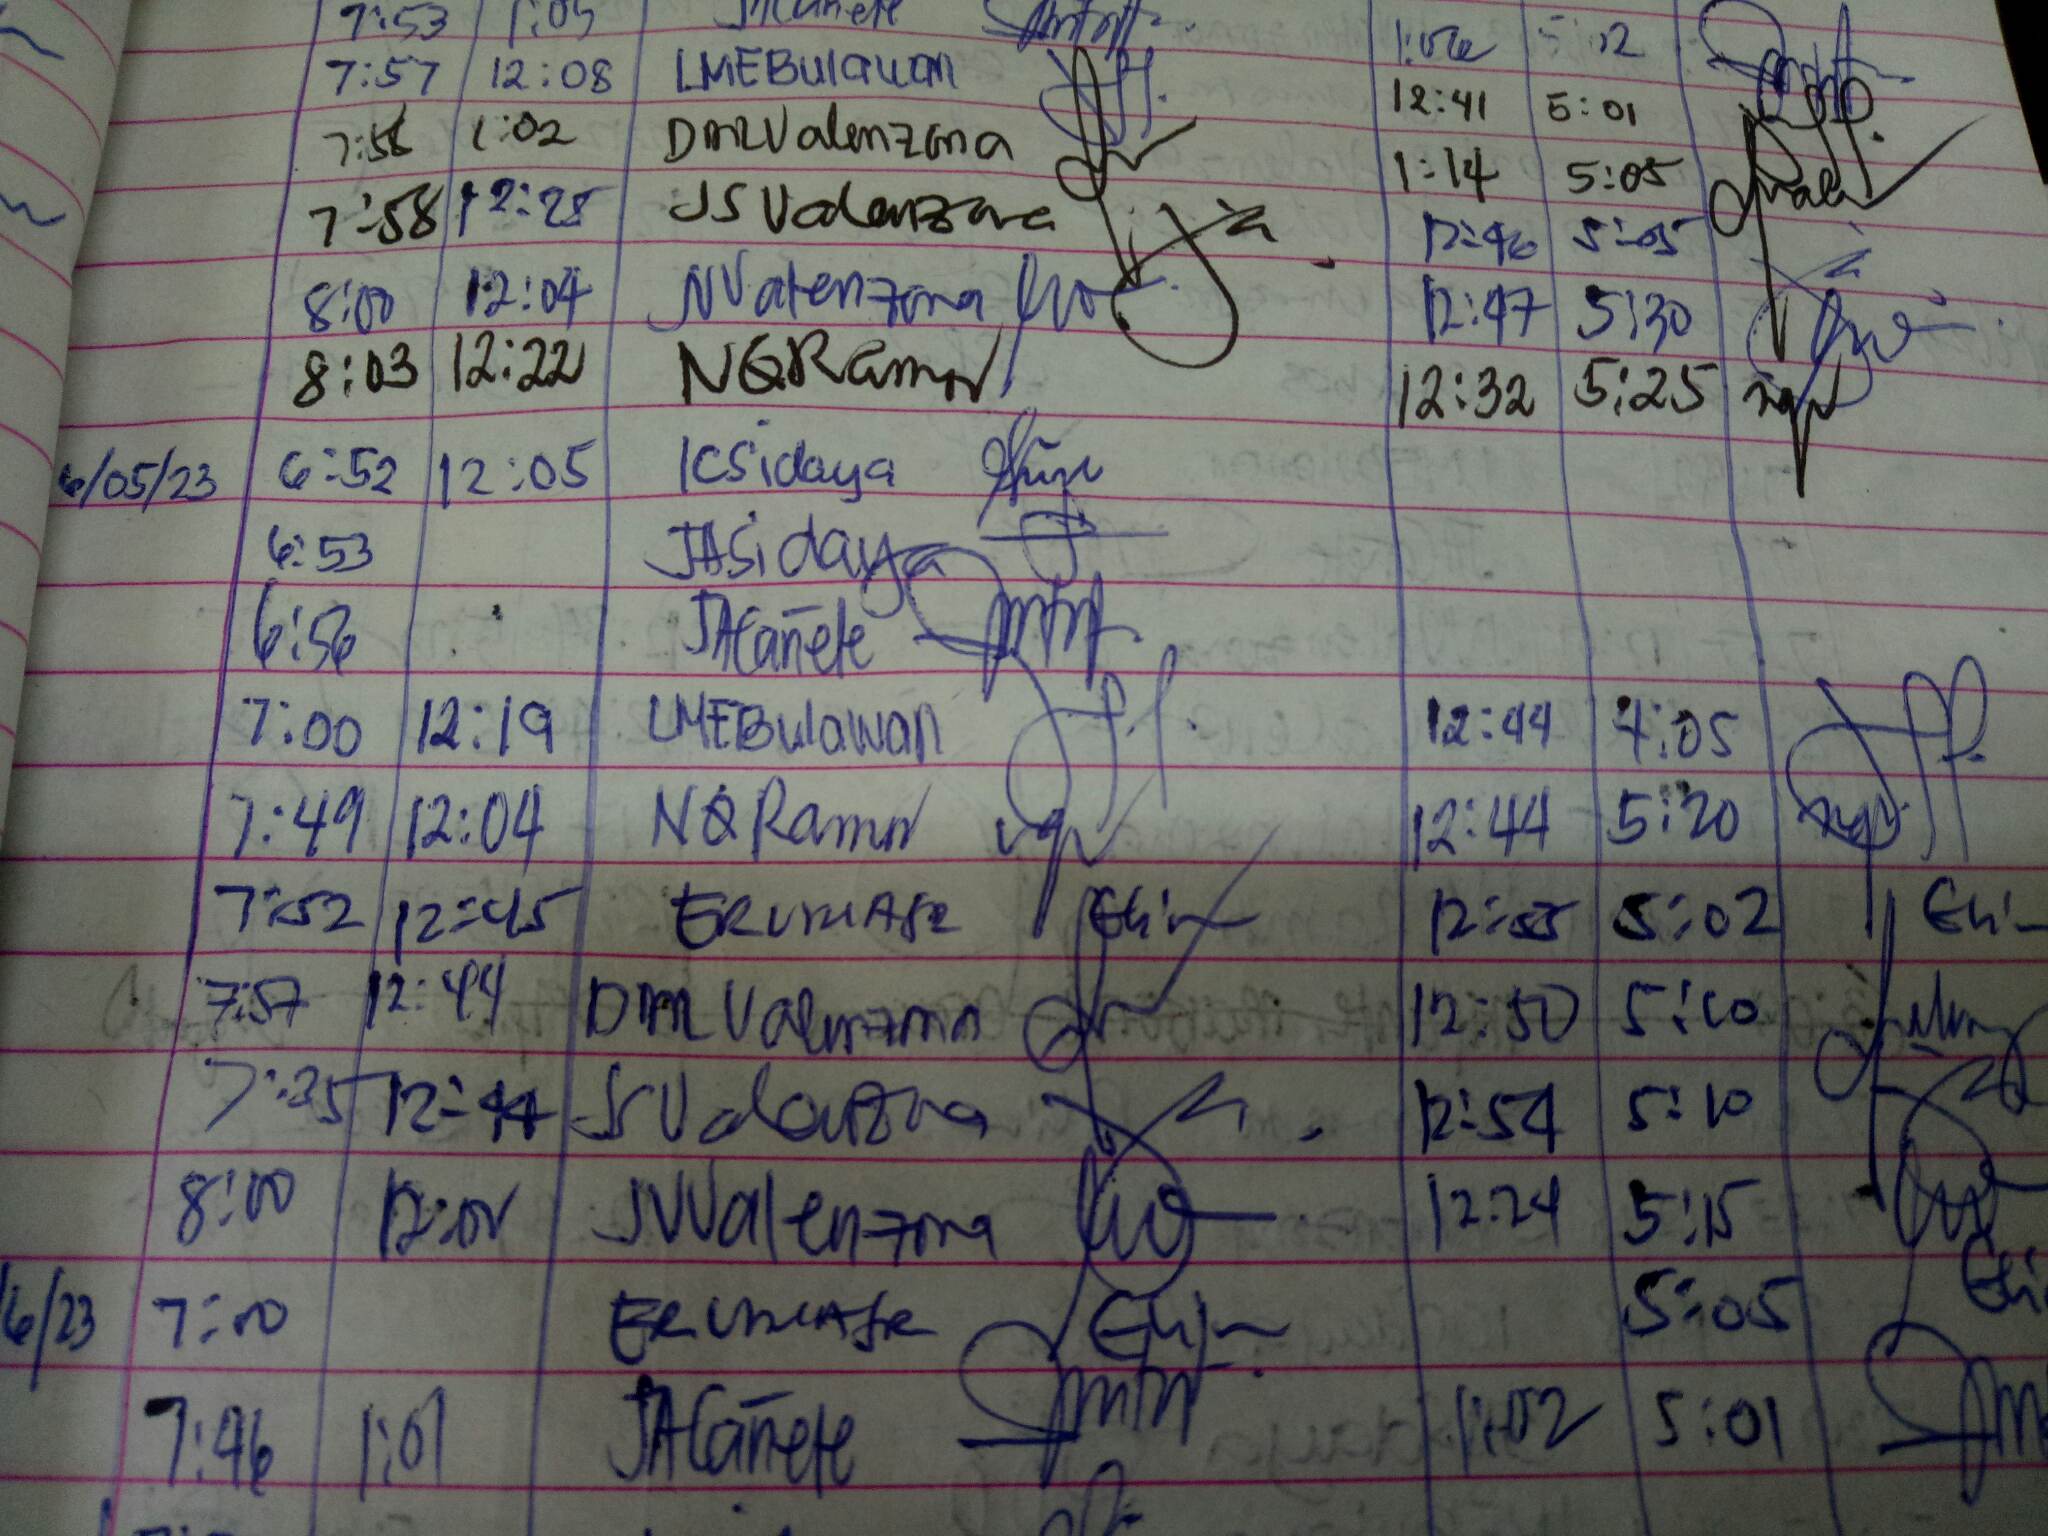 7:53 1:05 JACañete
7:57 12:08 LMEBulawan 1:06 5:02
7:58 1:02 DMRValenzona 12:41 5:01
7:58 12:28 JSValenzona 1:14 5:05
12:46 5:05
8:00 12:04 NValenzona 12:47 5:30
8:03 12:22 NQRamos 12:32 5:25
6/05/23 6:52 12:05 ICSidaya
6:53 JASidaya
6:56 JACañete
7:00 12:19 LMEBulawan 12:44 4:05
7:49 12:04 NQRamos 12:44 5:20
7:52 12:45 12:55 5:02
7:57 12:44 DMRValenzona 12:50 5:10
7:35 12:44 JSValenzona 12:54 5:10
8:00 12:02 NValenzona 12:24 5:15
6/23 7:00 5:05
7:46 1:01 JACañete 1:02 5:01